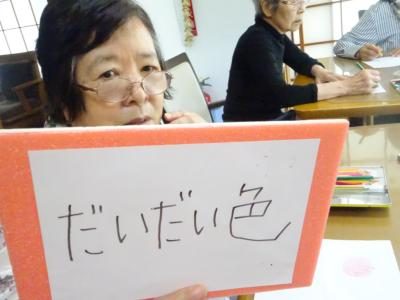 だいだい色